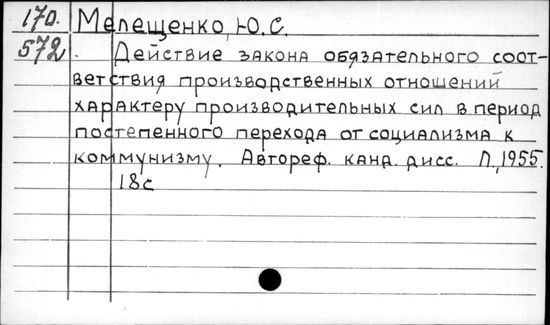 170. Мелещенко, Ю.С.
572. Действие закона обязательного соот-
ветствия производственных отношений
характеру производительных сил в период
постепенного перехода от социализма к
коммунизму. Автореф. канд. дисс. Л., 1955.
18с